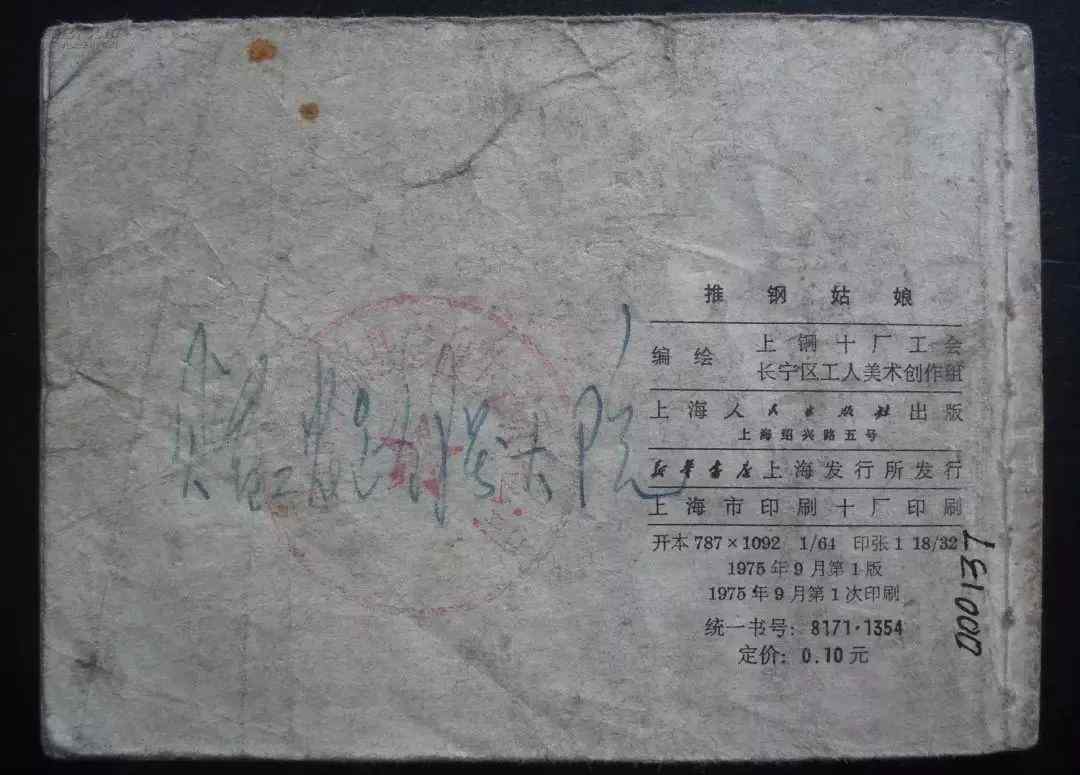 推钢姑娘
编绘 上钢十厂工会
长宁区工人美术创作组
上海人民出版社出版
上海绍兴路五号
新华书店上海发行所发行
上海市印刷十厂印刷
开本 787×1092 1/64 印张 1 18/32
1975年9月第1版
1975年9月第1次印刷
统一书号：8171·1354
定价：0.10元
000137